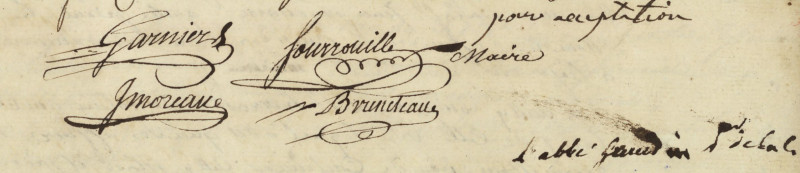 pour acceptation
Garnier fourrouille Maire
Jmoreau Bruneteau
l'abbé